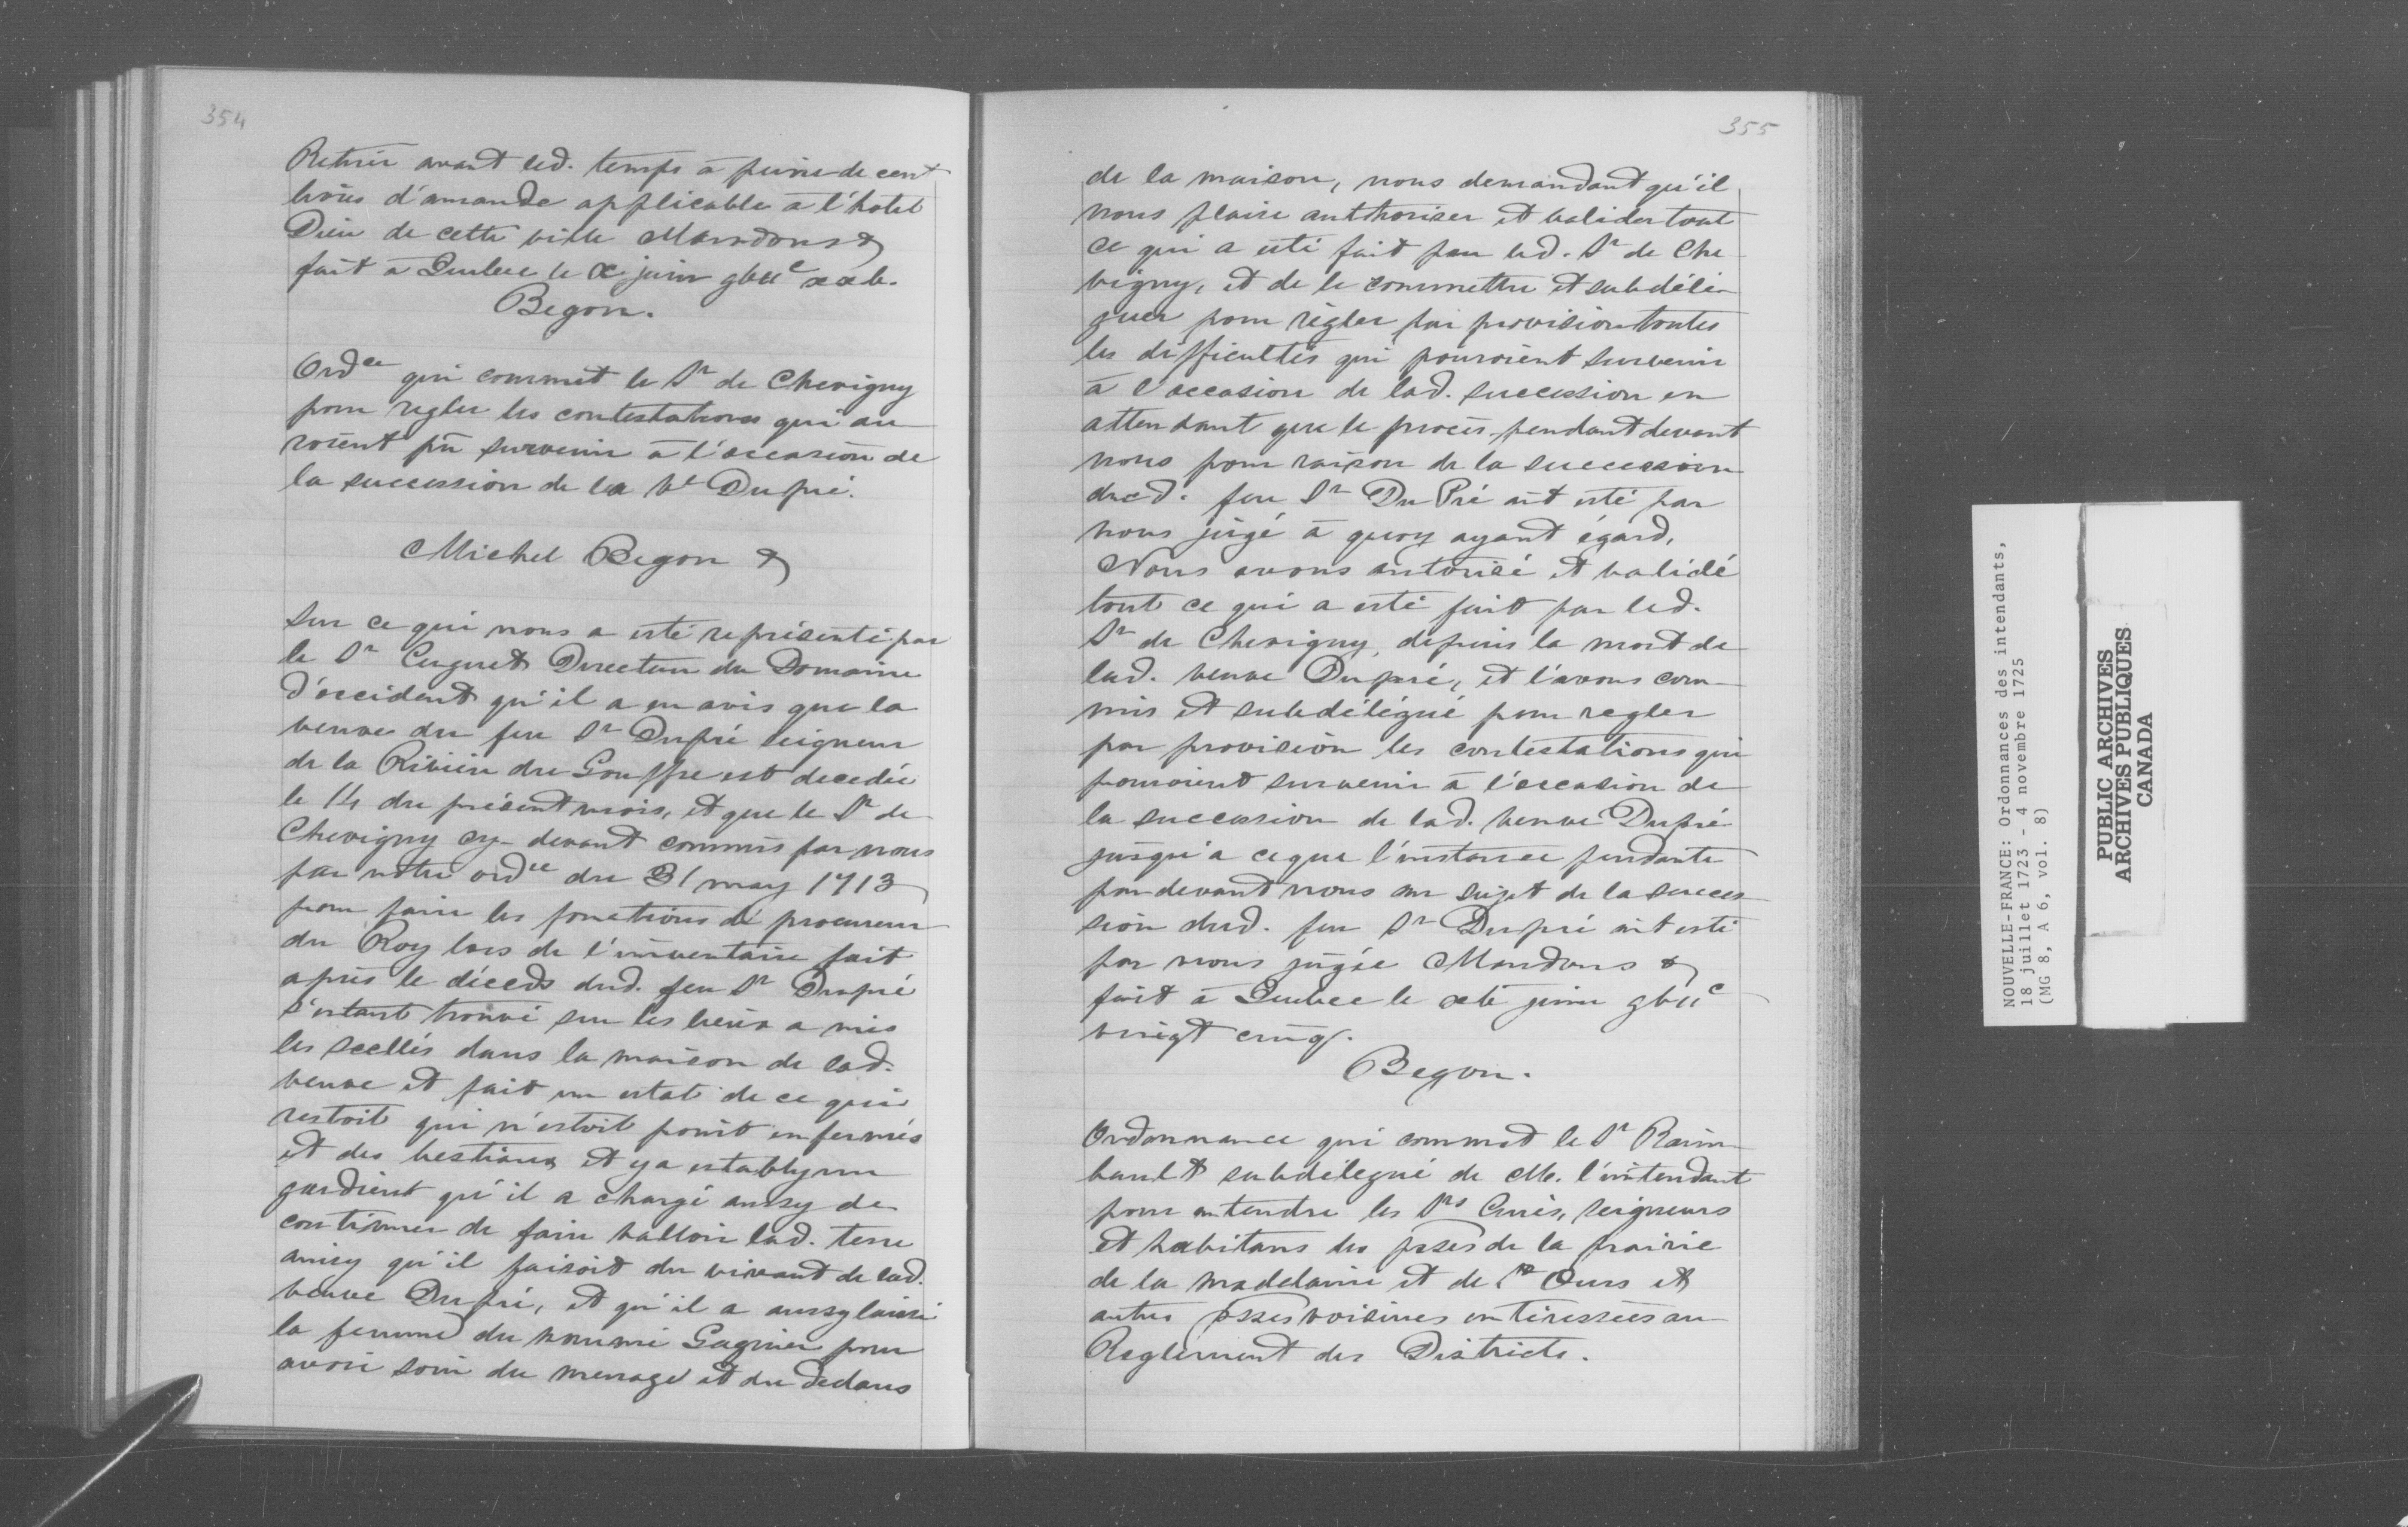 354
Retirer avant led. temps à peine de cent
livres d'amande applicable à l'hotel
Dieu de cette ville Mandons &
fait à Quebec le x juin gbiic xxb.
Begon.
Ordce qui commet le Sr de Chevigny
pour regler les contestations qui au
roient pû survenir à l'occasion de
la succession de la Ve Dupré.
Michel Begon &
Sur ce qui nous a esté représenté par
le Sr Cugnet Directeur du Domaine
d'occident qu'il a eu avis que la
veuve du feu Sr Dupré seigneur
de la Rivière du Gouffre est decedée
le 14 du présent mois, et que le Sr de
Chevigny cy-devant commis par nous
par notre ordce du 31 may 1713
pour faire les fonctions de procureur
du Roy lors de l'inventaire fait
après le déceds dud. feu Sr Dupré
s'estant trouvé sur les lieux a mis
les scellés dans la maison de lad.
veuve et fait un estat de ce qui
restoit qui n'estoit point enfermés
et des bestiaux et y a estably un
gardient qu'il a chargé aussy de
continuer de faire valloir lad. terre
ainsy qu'il faisoit du vivant de lad.
veuve Dupré, et qu'il a aussy laissé
la femme du nommé Gagnier pour
avoir soin du menage et du dedans
355
de la maison, nous demandant qu'il
nous plaise authoriser et valider tout
ce qui a esté fait par led. Sr de Che
vigny, et de le commettre et subdélé-
guer pour règler par provision toutes
les difficultés qui pouroient survenir
à l'occasion de lad. succession en
attendant que le procès pendant devant
nous pour raison de la succession
dud. feu Sr Du Pré ait esté par
nous jugé à quoy ayant égard,
Nous avons autorisé et validé
tout ce qui a esté fait par led.
Sr de Chevigny, depuis la mort de
lad. veuve Dupré, et l'avons com-
mis et subdélégué pour regler
par provision les contestations qui
pouroient survenir à l'occasion de
la succession de lad. veuve Dupré
jusqu'a ce que l'instance pendante
par devant nous au sujet de la succes
sion dud. feu Sr Dupré ait esté
par nous jugée Mandons &
fait à Quebec le juin gbiic
vingt cinq.
Begon.
Ordonnance qui commet le Sr Raim
bault subdélegué de M. l'intendant
pour entendre les Srs Curés, seigneurs
et habitans des psses de la prairie
de la madelaine et de St Ours et
autres psses voisines interessées au
Reglement des Districts.
NOUVELLE-FRANCE: Ordonnances des intendants,
18 juillet 1723 - 4 novembre 1725
(MG 8, A 6, vol. 8)
PUBLIC ARCHIVES
ARCHIVES PUBLIQUES
CANADA